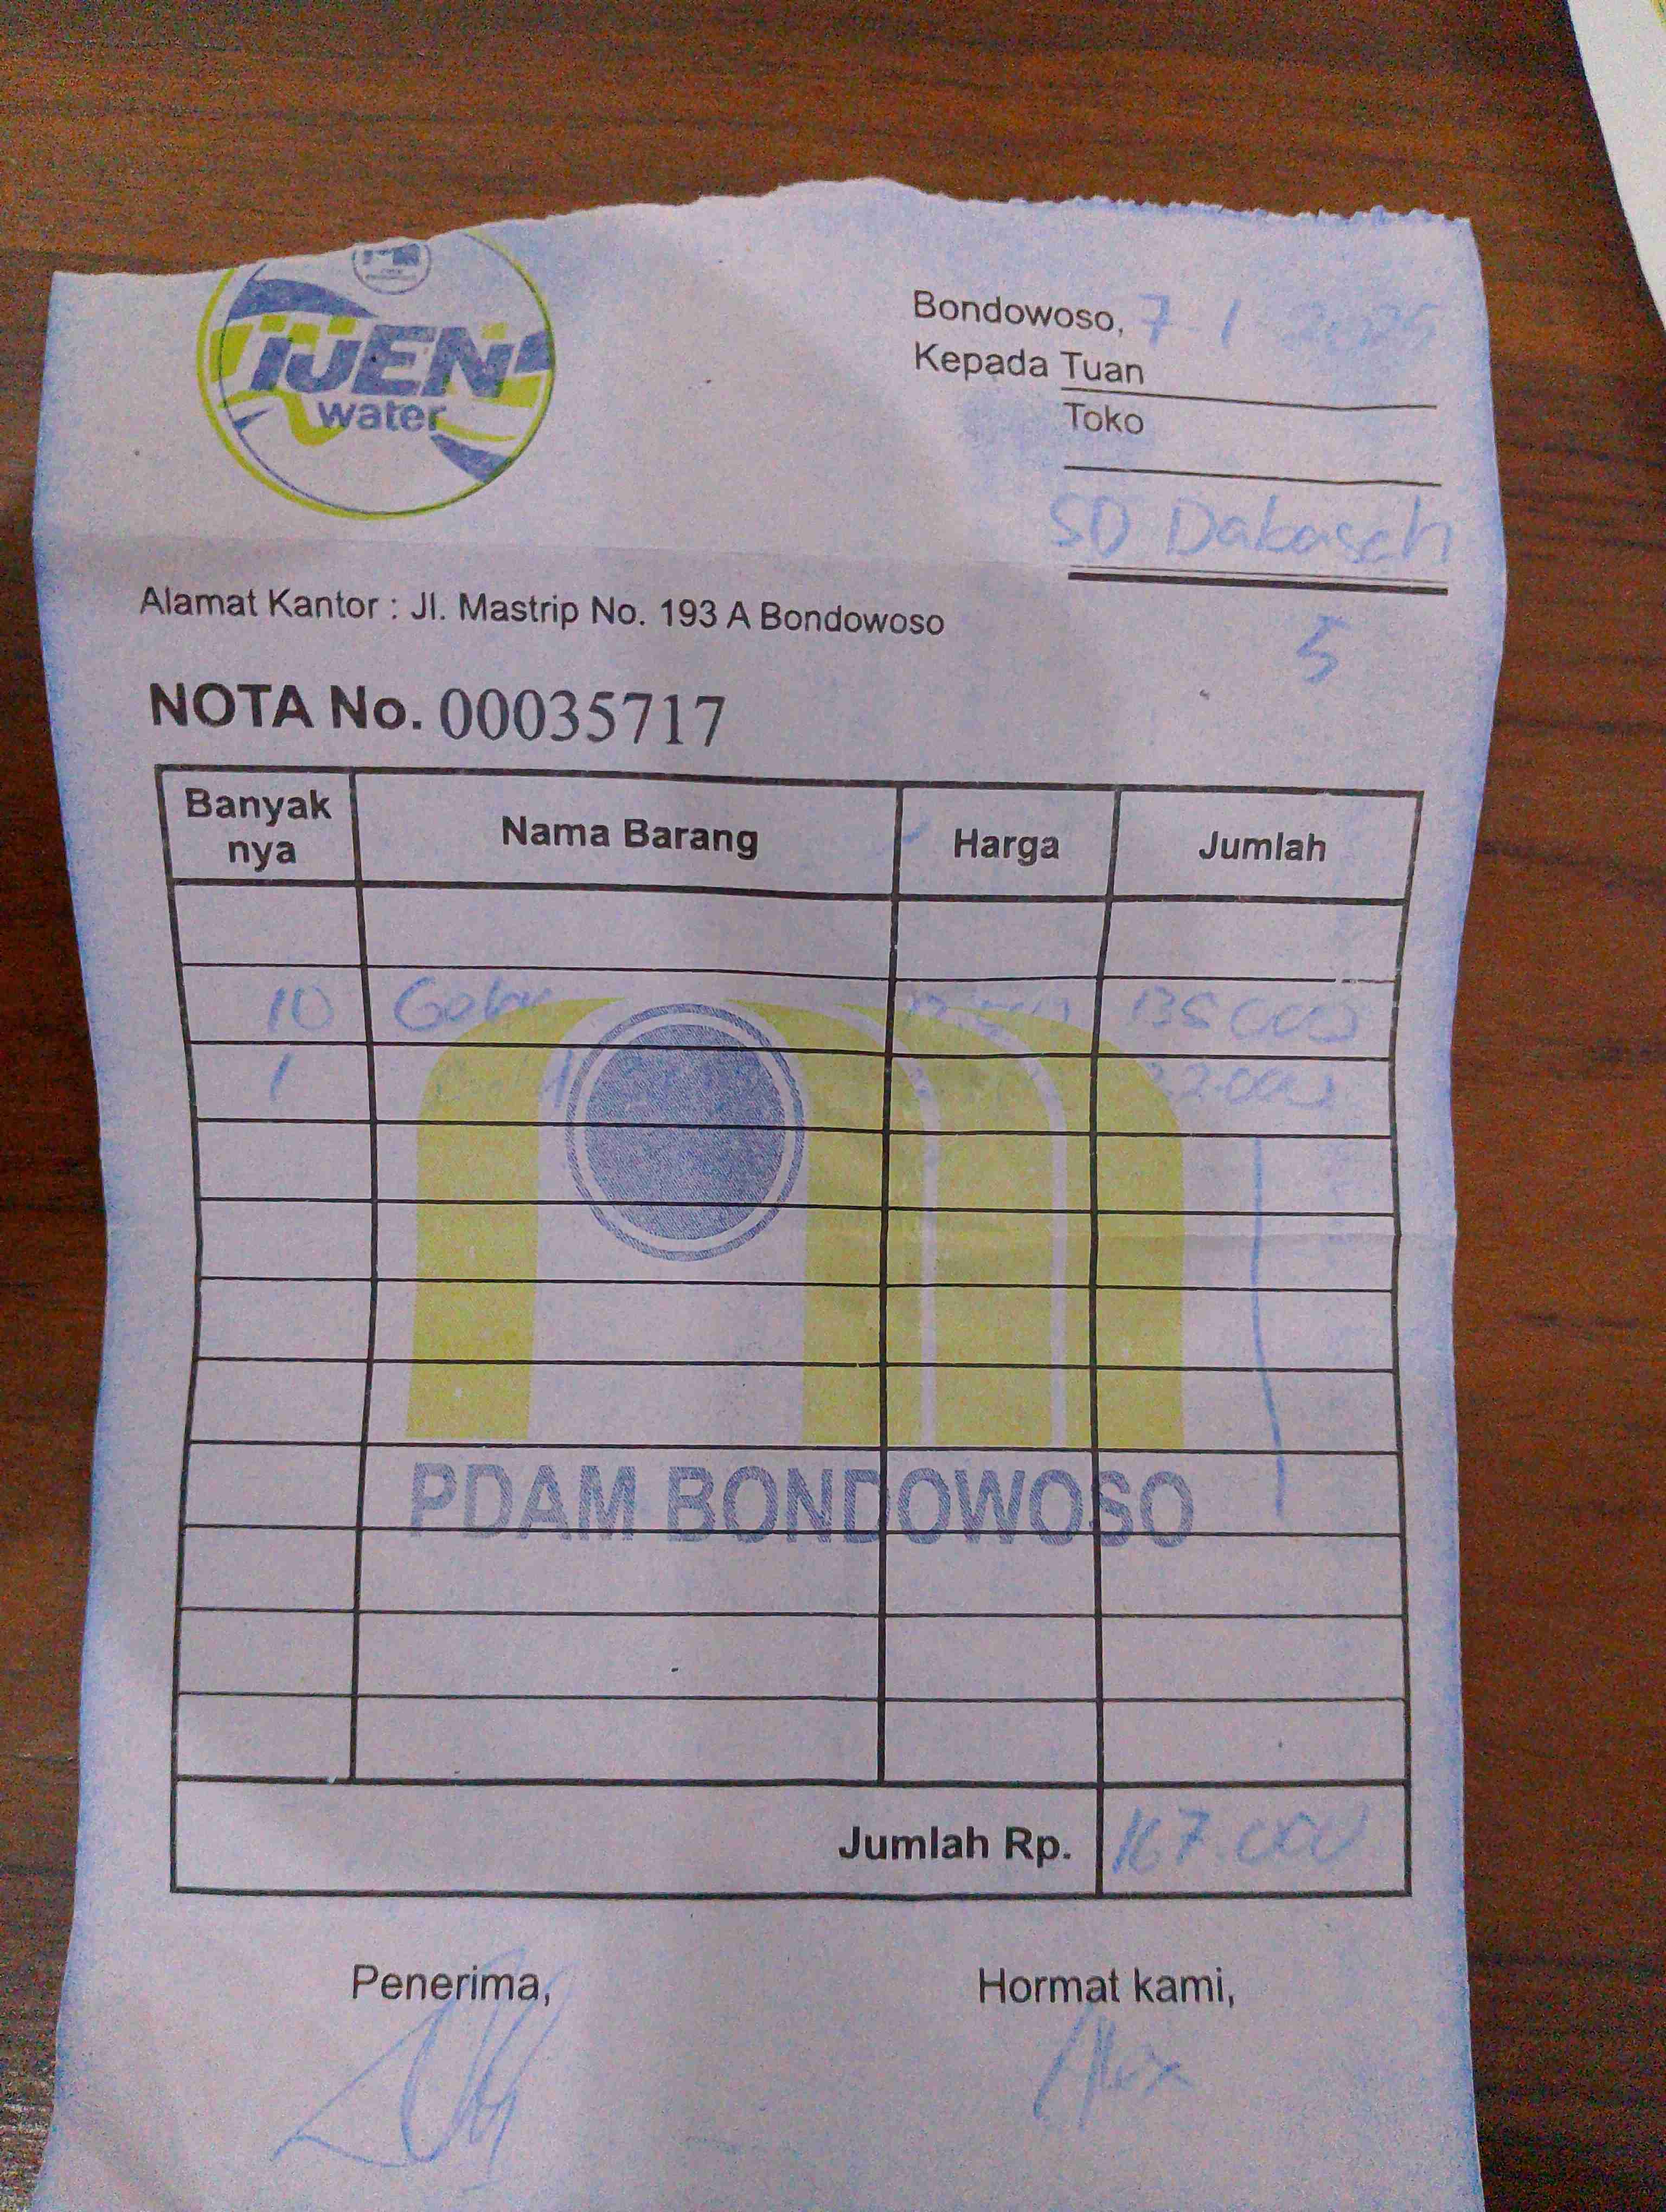 IJEN
water
Bondowoso, 7 1 2025
Kepada Tuan
Toko
SD Dabaseh
5
Alamat Kantor : Jl. Mastrip No. 193 A Bondowoso
NOTA No. 00035717
Banyak nya Nama Barang Harga Jumlah
10 135 000
1
PDAM BONDOWOSO
Jumlah Rp. 167.000
Penerima, Hormat kami,